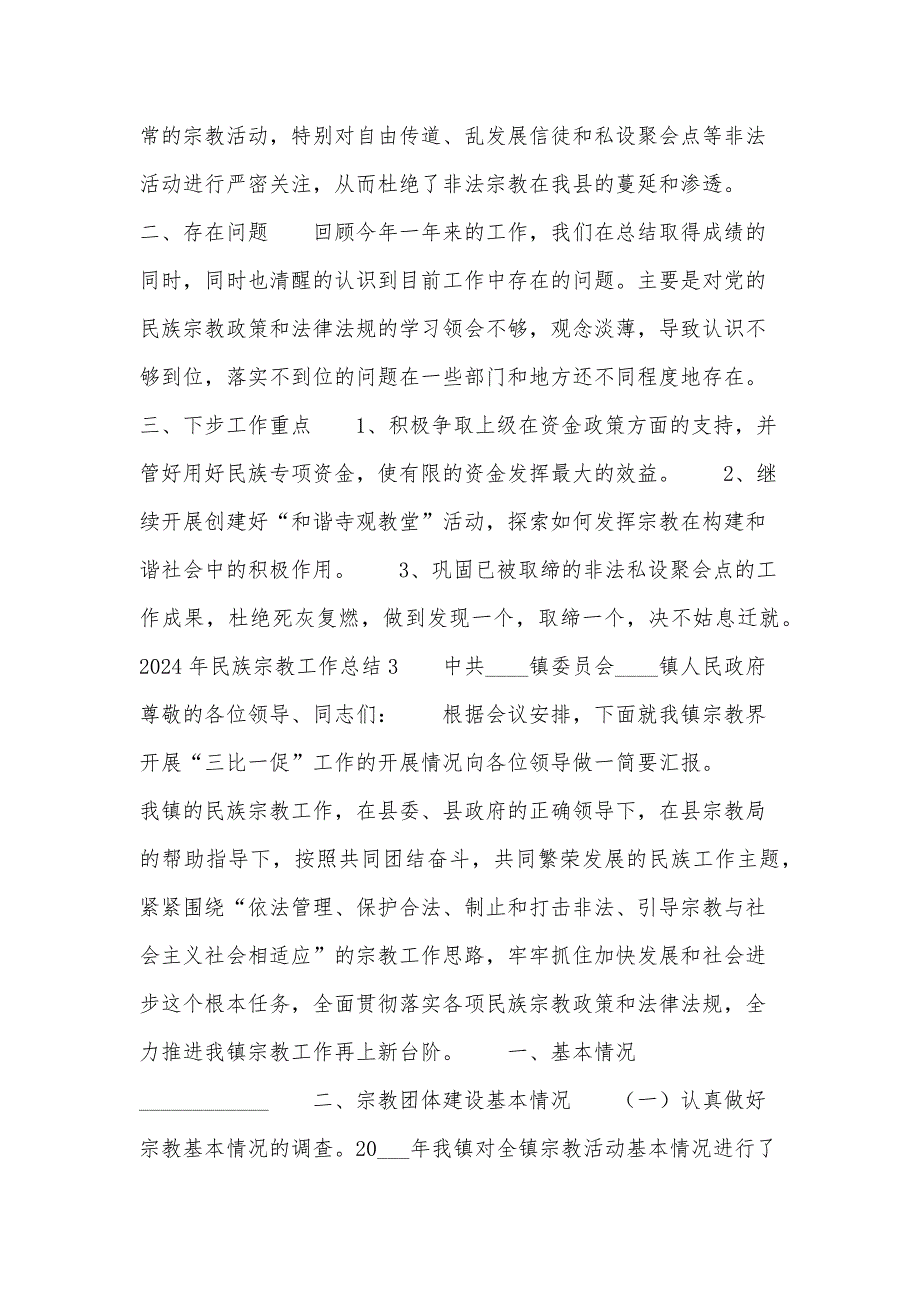 常的宗教活动，特别对自由传道、乱发展信徒和私设聚会点等非法
活动进行严密关注，从而杜绝了非法宗教在我县的蔓延和渗透。
二、存在问题　　回顾今年一年来的工作，我们在总结取得成绩的
同时，同时也清醒的认识到目前工作中存在的问题。主要是对党的
民族宗教政策和法律法规的学习领会不够，观念淡薄，导致认识不
够到位，落实不到位的问题在一些部门和地方还不同程度地存在。
三、下步工作重点　　1、积极争取上级在资金政策方面的支持，并
管好用好民族专项资金，使有限的资金发挥最大的效益。　　2、继
续开展创建好“和谐寺观教堂”活动，探索如何发挥宗教在构建和
谐社会中的积极作用。　　3、巩固已被取缔的非法私设聚会点的工
作成果，杜绝死灰复燃，做到发现一个，取缔一个，决不姑息迁就。
2024 年民族宗教工作总结 3　　中共____镇委员会____镇人民政府
尊敬的各位领导、同志们：　　根据会议安排，下面就我镇宗教界
开展“三比一促”工作的开展情况向各位领导做一简要汇报。
我镇的民族宗教工作，在县委、县政府的正确领导下，在县宗教局
的帮助指导下，按照共同团结奋斗，共同繁荣发展的民族工作主题，
紧紧围绕“依法管理、保护合法、制止和打击非法、引导宗教与社
会主义社会相适应”的宗教工作思路，牢牢抓住加快发展和社会进
步这个根本任务，全面贯彻落实各项民族宗教政策和法律法规，全
力推进我镇宗教工作再上新台阶。　　一、基本情况
____________　　二、宗教团体建设基本情况　　（一）认真做好
宗教基本情况的调查。20___年我镇对全镇宗教活动基本情况进行了